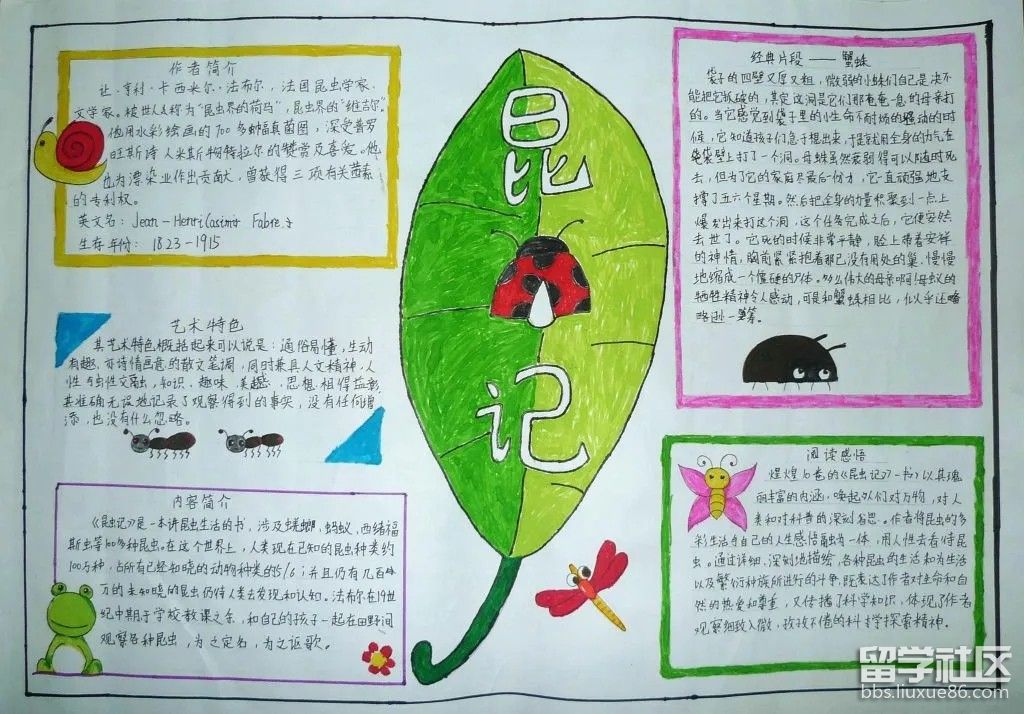 作者简介
让·亨利·卡西米尔·法布尔，法国昆虫学家、
文学家。被世人称为"昆虫界的荷马"，昆虫界的"维吉尔"。
他用水彩绘画的700多幅真菌图，深受普罗
旺斯诗人米斯特拉尔的赞赏及喜爱。他
也为漂染业作出贡献，曾获得三项有关茜素
的专利权。
英文名：Jean-Henri Casimir Fabre
生存年份：1823-1915
艺术特色
其艺术特色概括起来可以说是：通俗易懂，生动
有趣，亦诗情画意的散文笔调，同时兼具人文精神，人
性与虫性交融，知识、趣味、美趣、思想相得益彰
其准确无误地记录了观察得到的事实，没有任何增
添，也没有什么忽略。
内容简介
《昆虫记》是一本讲昆虫生活的书，涉及蜣螂、蚂蚁、西绪福
斯虫等100多种昆虫。在这个世界上，人类现在已知的昆虫种类约
100万种，占所有已经知晓的动物种类的5/6；并且仍有几百
万的未知晓的昆虫仍待人类去发现和认知。法布尔在19世
纪中期于学校教课之余，和自己的孩子一起在田野间
观察各种昆虫，为之定名，为之讴歌。
昆
虫
记
经典片段——蟹蛛
袋子的四壁又厚又粗，微弱的小蛛们自己是决不
能把它抓破的，其实这洞是它们那奄奄一息的母亲打
的。当它感觉到袋子里的小生命不耐烦的骚动的时
候，它知道孩子们急于想出来，于是就用全身的力气在
袋壁上打了一个洞。母蛛虽然衰弱得可以随时死
去，但为了它的家庭尽最后何才，它一直顽强地支
撑了五六个星期。然后把全身的力量积聚到一点上
爆发出来打这个洞，这个任务完成之后，它便安然
去世了。它死的时候非常平静，脸上带着安祥
的神情，胸前紧紧抱着那已没有用处的巢，慢慢
地缩成一个僵硬的尸体。多么伟大的母亲啊！母蚁的
牺牲精神令人感动，可是和蟹蛛相比，似乎还略
略逊一筹。
阅读感悟
煌煌10卷的《昆虫记》一书以其瑰
丽丰富的内涵，唤起人们对万物，对人
类和对科普的深刻省思。作者将昆虫的多
彩生活与自己的人生感悟融为一体，用人性去看待昆
虫。通过详细、深刻地描绘，各种昆虫的生活和为生活
以及繁衍种族所进行的斗争，既表达了作者对生命和自
然的热爱和尊重，又传播了科学知识，体现了作者
观察细致入微，孜孜不倦的科学探索精神。
留学社区
bbs.liuxue86.com